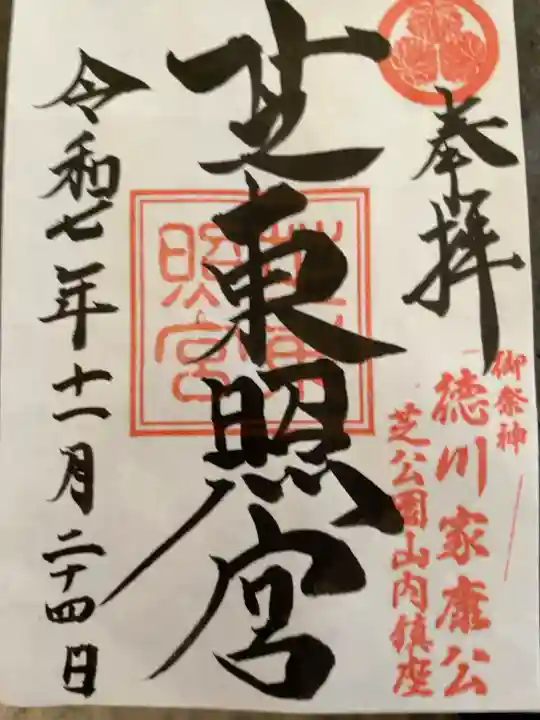 奉拝
御祭神
徳川家康公
芝公園山内鎮座
芝東照宮
芝東照宮
令和七年十一月二十四日